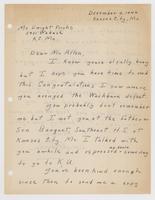 December 6, 1944
Kansas City, Mo.
Mr. Dwight
K.C. Mo.
Dear Mr. Allen,
I know you're really busy
but I hope you have time to read
this. Congratulations I see where
you avenged the Washburn defeat.
You probably don't remember
me but I met you at the
Banquet, Southeast H.S. at
Kansas City, Mo. I talked with
you awhile and expressed my desire
to go to K.U.
You've been kind enough
since then to send me a copy